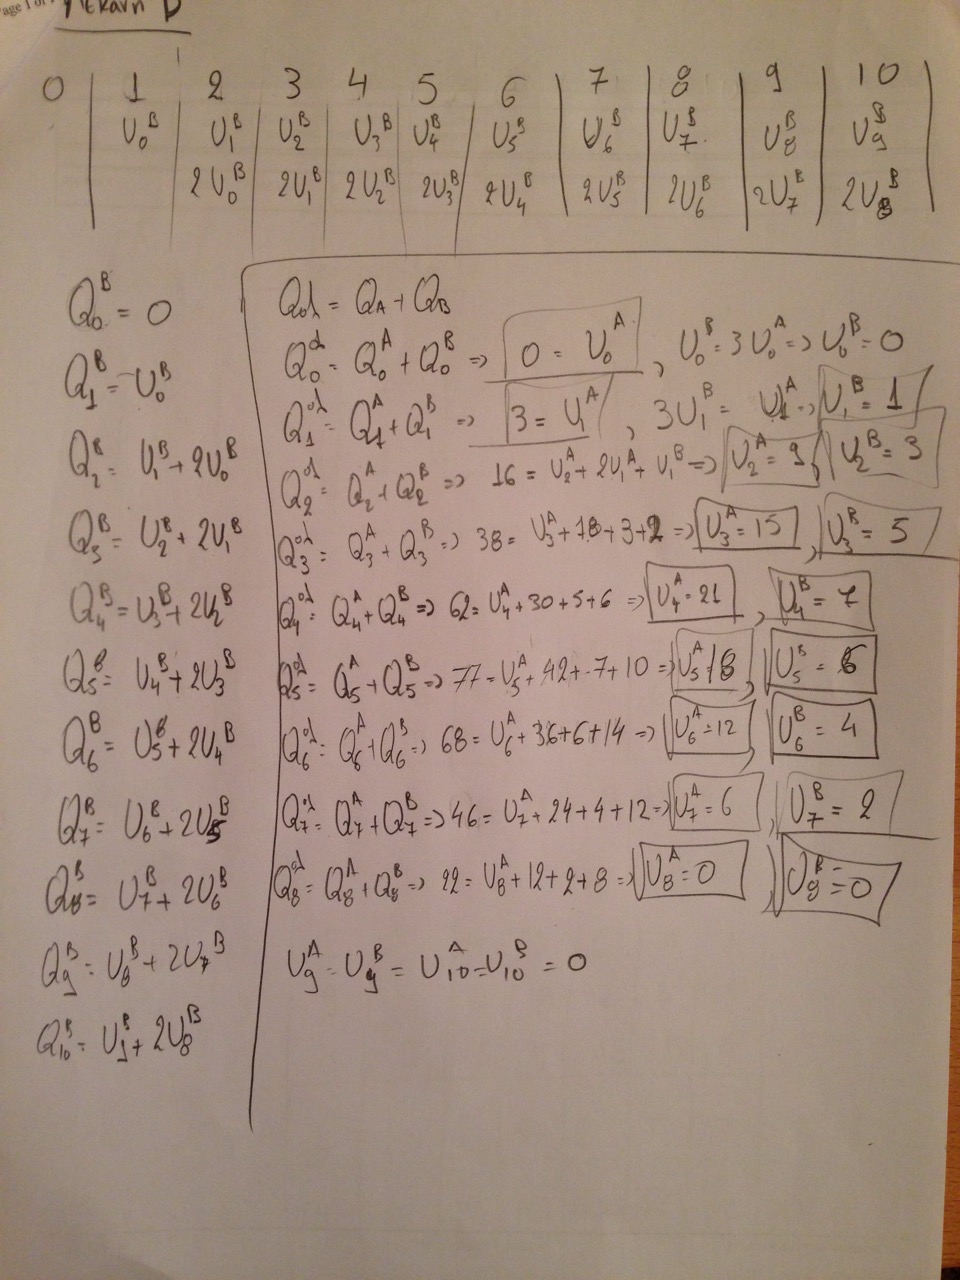 Page 1 of
Λεκάνη Β
0 1 2 3 4 5 6 7 8 9 10
U₀ᴮ U₁ᴮ U₂ᴮ U₃ᴮ U₄ᴮ U₅ᴮ U₆ᴮ U₇ᴮ U₈ᴮ U₉ᴮ
2U₀ᴮ 2U₁ᴮ 2U₂ᴮ 2U₃ᴮ 2U₄ᴮ 2U₅ᴮ 2U₆ᴮ 2U₇ᴮ 2U₈ᴮ
Q₀ᴮ = 0
Q₁ᴮ = U₀ᴮ
Q₂ᴮ = U₁ᴮ + 2U₀ᴮ
Q₃ᴮ = U₂ᴮ + 2U₁ᴮ
Q₄ᴮ = U₃ᴮ + 2U₂ᴮ
Q₅ᴮ = U₄ᴮ + 2U₃ᴮ
Q₆ᴮ = U₅ᴮ + 2U₄ᴮ
Q₇ᴮ = U₆ᴮ + 2U₅ᴮ
Q₈ᴮ = U₇ᴮ + 2U₆ᴮ
Q₉ᴮ = U₈ᴮ + 2U₇ᴮ
Q₁₀ᴮ = U₉ᴮ + 2U₈ᴮ
Qολ = QA + QB
Q₀ᵒˡ = Q₀ᴬ + Q₀ᴮ => 0 = U₀ᴬ, U₀ᴮ = 3U₀ᴬ => U₀ᴮ = 0
Q₁ᵒˡ = Q₁ᴬ + Q₁ᴮ => 3 = U₁ᴬ, 3U₁ᴮ = U₁ᴬ => U₁ᴮ = 1
Q₂ᵒˡ = Q₂ᴬ + Q₂ᴮ => 16 = U₂ᴬ + 2U₁ᴬ + U₁ᴮ => U₂ᴬ = 9, U₂ᴮ = 3
Q₃ᵒˡ = Q₃ᴬ + Q₃ᴮ => 38 = U₃ᴬ + 18 + 3 + 2 => U₃ᴬ = 15, U₃ᴮ = 5
Q₄ᵒˡ = Q₄ᴬ + Q₄ᴮ => 62 = U₄ᴬ + 30 + 5 + 6 => U₄ᴬ = 21, U₄ᴮ = 7
Q₅ᵒˡ = Q₅ᴬ + Q₅ᴮ => 77 = U₅ᴬ + 42 + 7 + 10 => U₅ᴬ = 18, U₅ᴮ = 6
Q₆ᵒˡ = Q₆ᴬ + Q₆ᴮ => 68 = U₆ᴬ + 36 + 6 + 14 => U₆ᴬ = 12, U₆ᴮ = 4
Q₇ᵒˡ = Q₇ᴬ + Q₇ᴮ => 46 = U₇ᴬ + 24 + 4 + 12 => U₇ᴬ = 6, U₇ᴮ = 2
Q₈ᵒˡ = Q₈ᴬ + Q₈ᴮ => 22 = U₈ᴬ + 12 + 2 + 8 => U₈ᴬ = 0, U₈ᴮ = 0
U₉ᴬ = U₉ᴮ = U₁₀ᴬ = U₁₀ᴮ = 0